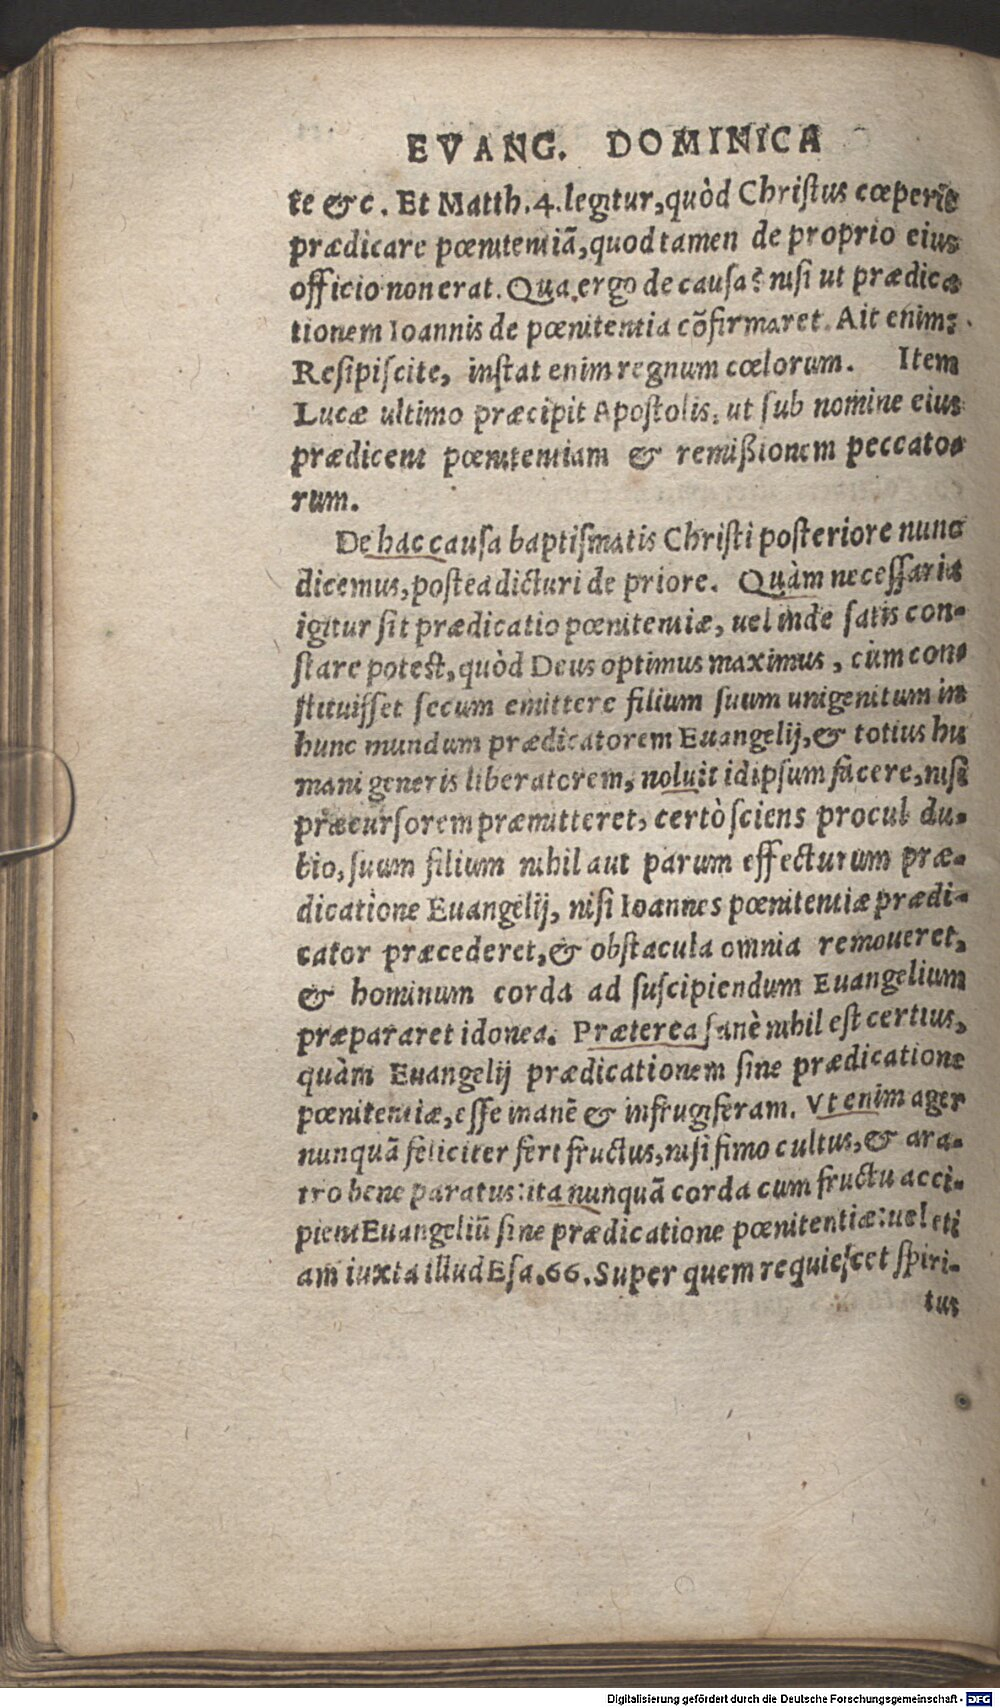 EVANG. DOMINICA
te &c. Et Matth. 4. legitur, quòd Christus cœperit
prædicare pœnitentiā, quod tamen de proprio eius
officio non erat. Qua ergo de causa? nisi ut prædica
tionem Ioannis de pœnitentia cōfirmaret. Ait enim:
Resipiscite, instat enim regnum cœlorum. Item
Lucæ ultimo præcipit Apostolis, ut sub nomine eius
prædicent pœnitentiam & remißionem peccato-
rum.
De hac causa baptismatis Christi posteriore nunc
dicemus, postea dicturi de priore. Quàm necessaria
igitur sit prædicatio pœnitentiæ, uel inde satis con-
stare potest, quòd Deus optimus maximus, cùm con-
stituisset secum emittere filium suum unigenitum in
hunc mundum prædicatorem Euangelij, & totius hu
mani generis liberatorem, noluit idipsum facere, nisi
præcursorem præmitteret, certò sciens procul du-
bio, suum filium nihil aut parum effecturum præ-
dicatione Euangelij, nisi Ioannes pœnitentiæ prædi-
cator præcederet, & obstacula omnia remoueret,
& hominum corda ad suscipiendum Euangelium
præpararet idonea. Præterea sanè nihil est certius,
quàm Euangelij prædicationem sine prædicatione
pœnitentiæ, esse inanē & infrugiferam. Vt enim ager
nunquā feliciter fert fructus, nisi fimo cultus, & ara-
tro bene paratus: ita nunquā corda cum fructu acci-
pient Euangeliū sine prædicatione pœnitentiæ: uel eti
am iuxta illud Esa. 66. Super quem requiescet spiri-
tus
Digitalisierung gefördert durch die Deutsche Forschungsgemeinschaft - DFG